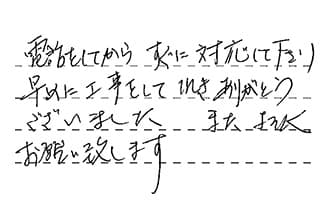 電話をしてから すぐに対応して下さり
早めに工事をして頂き ありがとう
ございました また
お願い致します